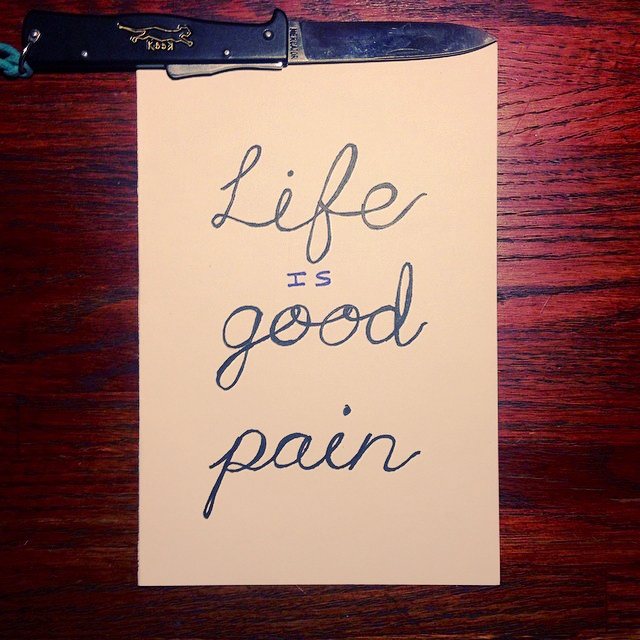 K55K
MERCATOR
Life
IS
good
pain